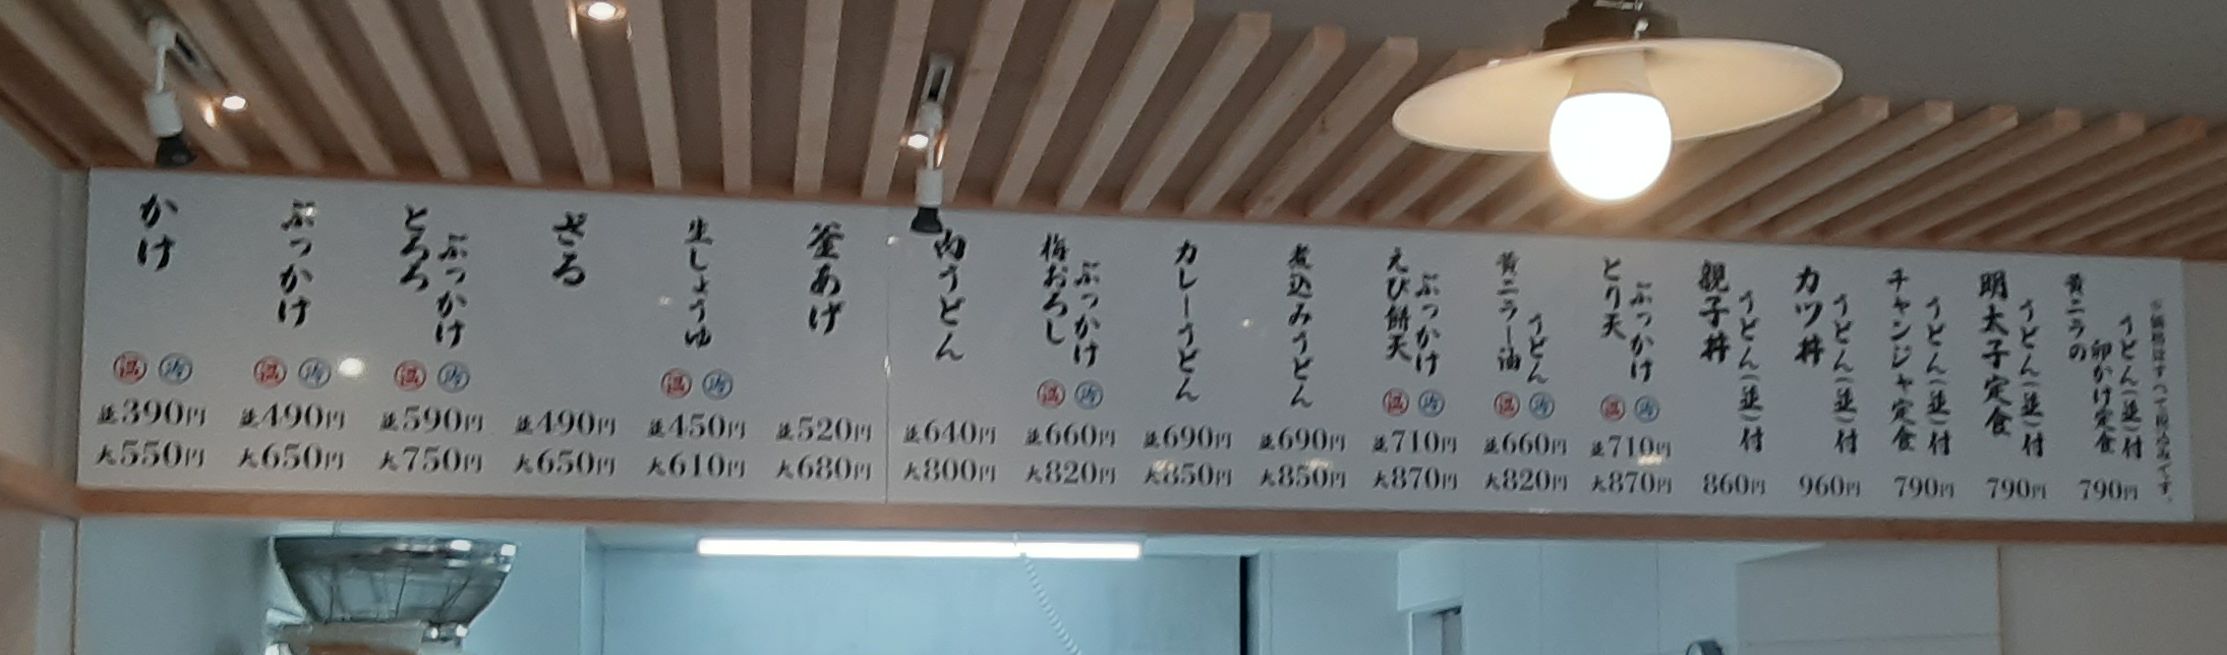 かけ
温 冷
並390円
大550円
ぶっかけ
温 冷
並490円
大650円
ぶっかけ
とろろ
温 冷
並590円
大750円
ざる
並490円
大650円
生しょうゆ
温 冷
並450円
大610円
釜あげ
並520円
大680円
肉うどん
並640円
大800円
ぶっかけ
梅おろし
温 冷
並660円
大820円
カレーうどん
並690円
大850円
煮込みうどん
並690円
大850円
ぶっかけ
えび餅天
温 冷
並710円
大870円
黄ニラー油
うどん
温 冷
並660円
大820円
ぶっかけ
とり天
温 冷
並710円
大870円
親子丼
うどん(並)付
860円
カツ丼
うどん(並)付
960円
チャンジャ定食
うどん(並)付
790円
明太子定食
うどん(並)付
790円
黄ニラの
卵かけ定食
うどん(並)付
790円
※価格はすべて税込みです。